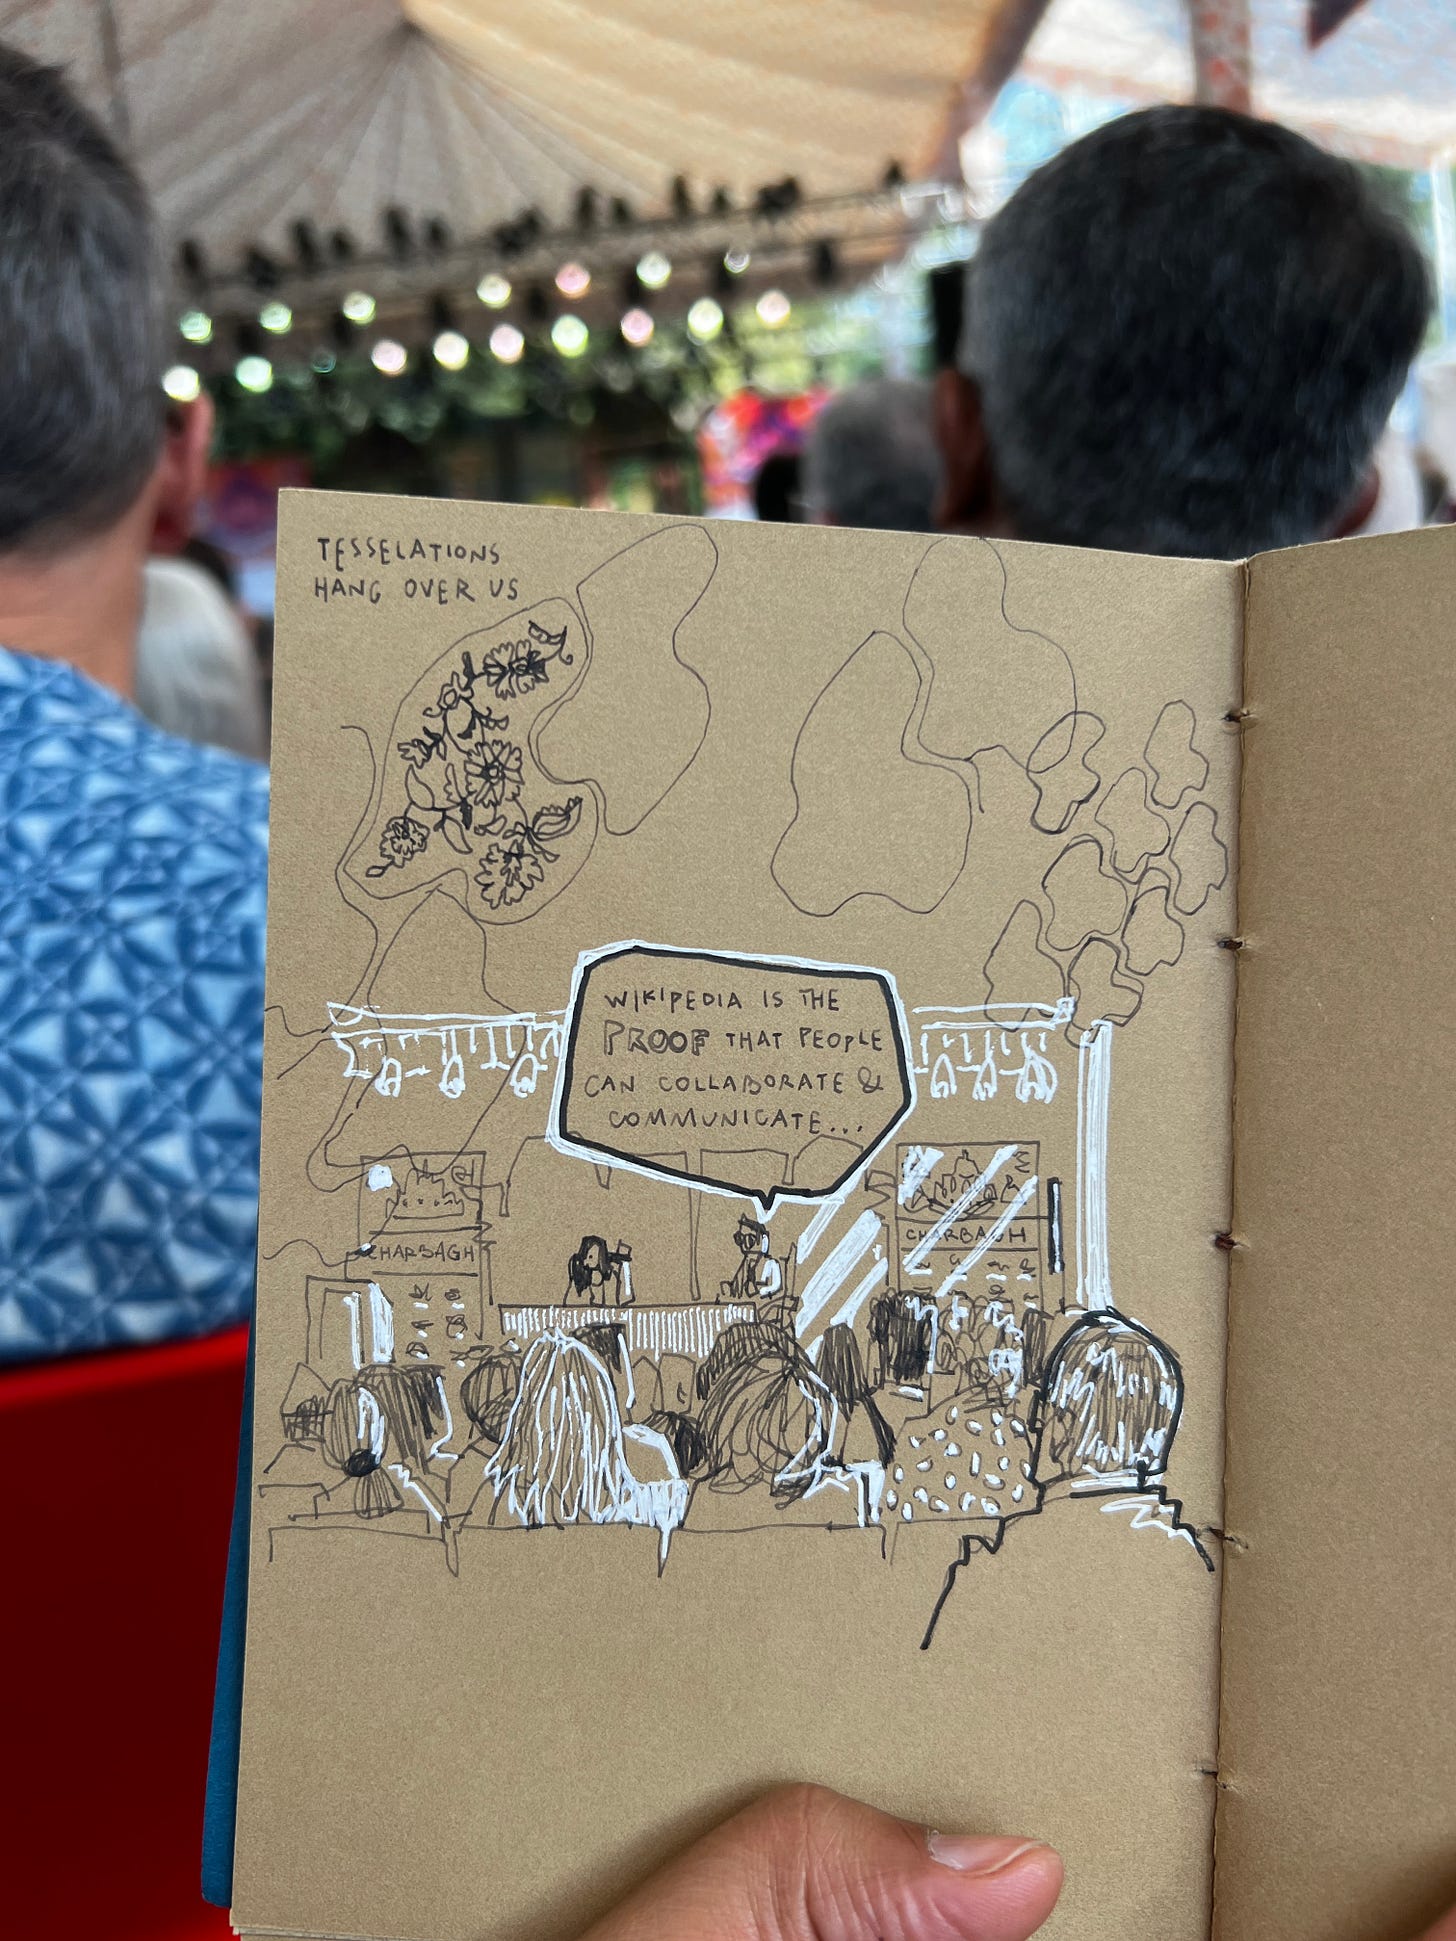 TESSELATIONS
HANG OVER US
WIKIPEDIA IS THE
PROOF THAT PEOPLE
CAN COLLABORATE &
COMMUNICATE...
CHARBAGH
CHARBAGH